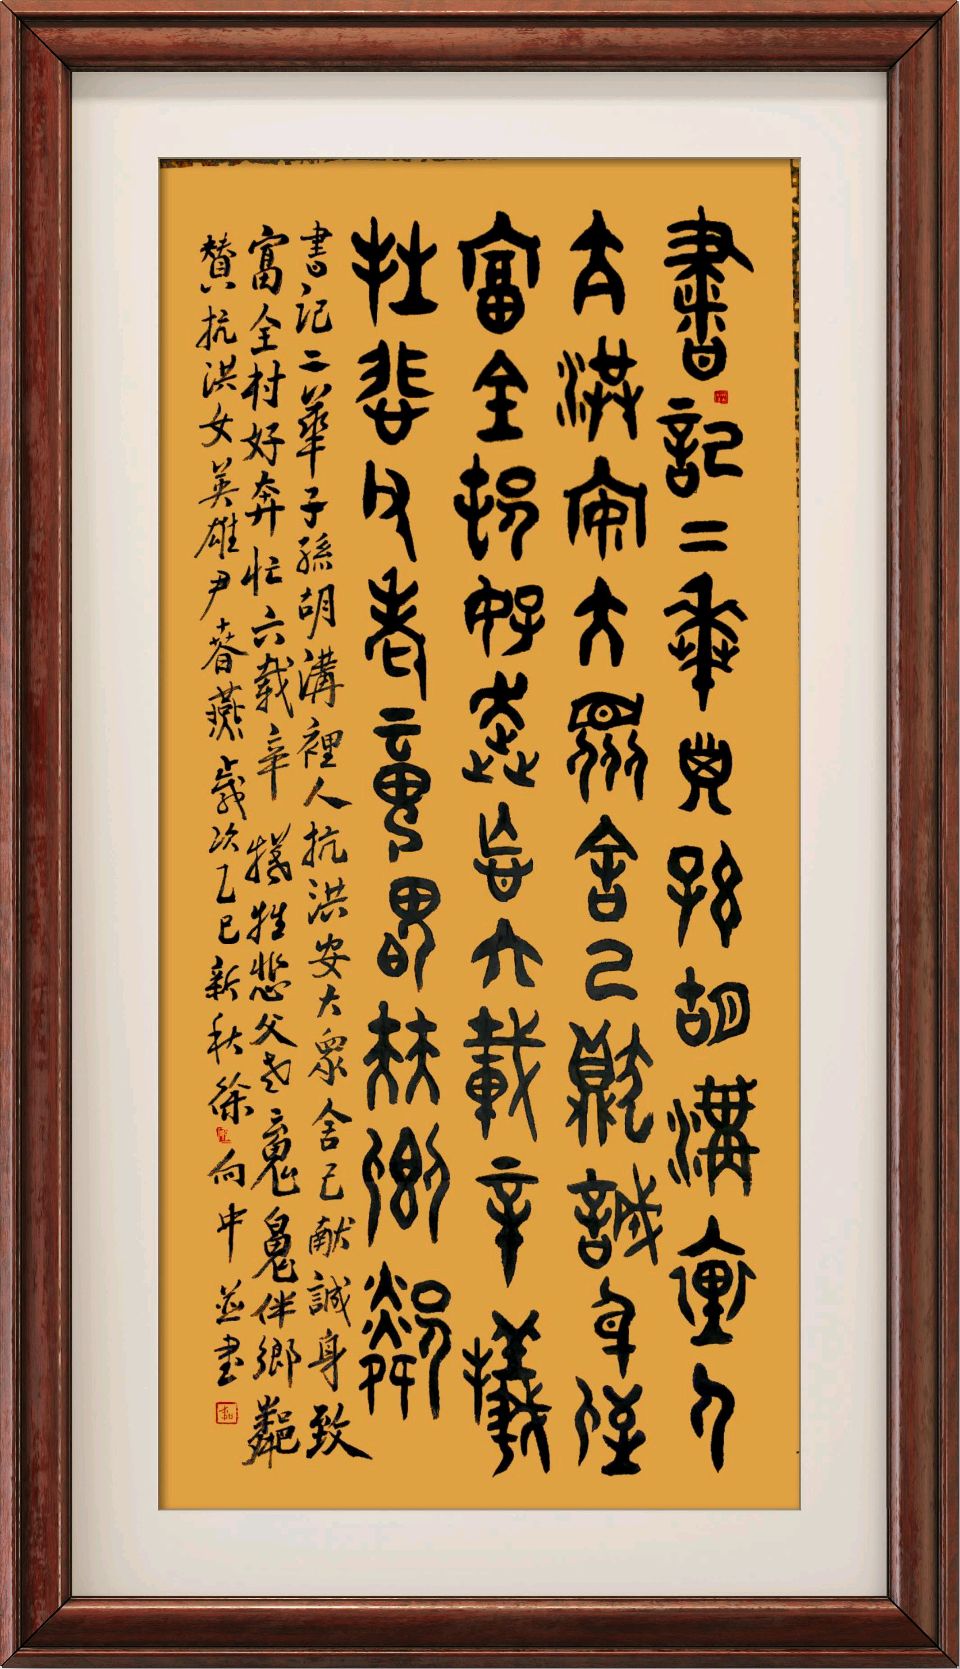 書記二華子孫胡溝裡人
亢洪安大眾舍己獻誠身致
富全村好奔忙六載辛犧
牲悲父老童鬼伴鄉鄰
書記二華子孫胡溝裡人抗洪安大眾舍己献誠身致
富全村好奔忙六載辛犧牲悲父老魂鬼伴鄉鄰
贊抗洪女英雄尹春燕歲次乙巳新秋徐向中並書